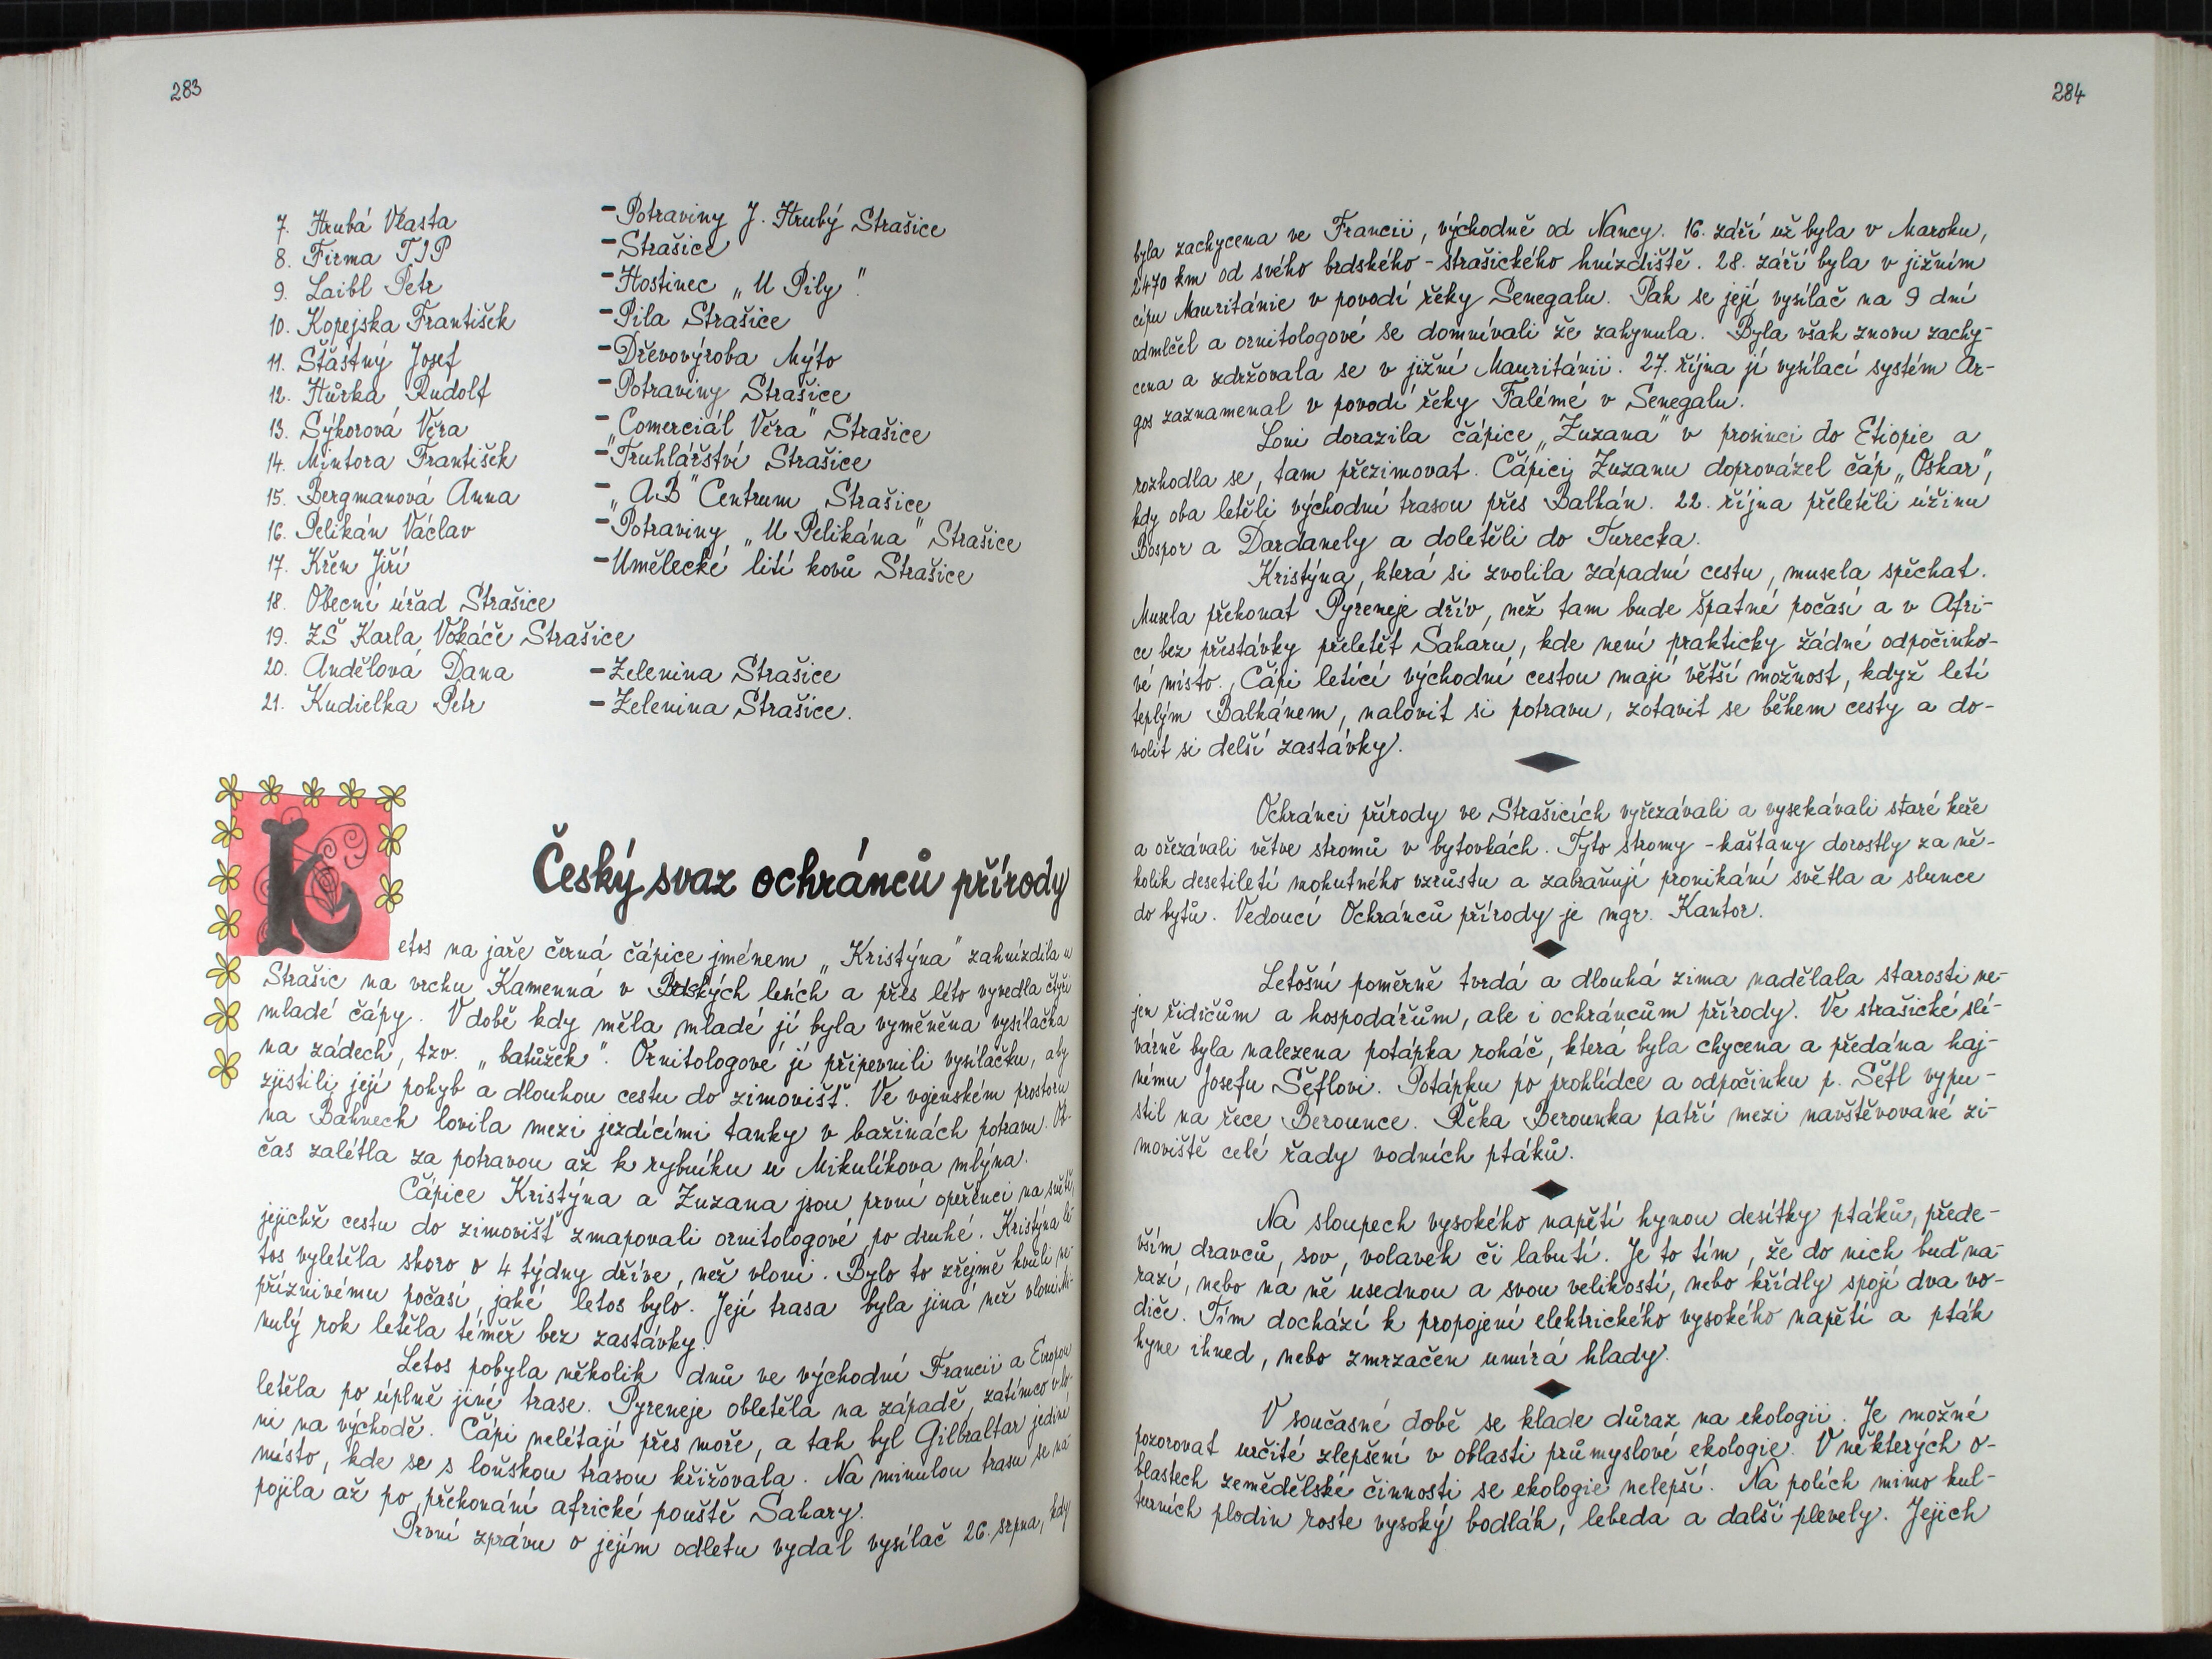 283
7. Hrubá Vlasta - Potraviny J. Hrubý Strašice
8. Firma TIP - Strašice
9. Laibl Petr - Hostinec „U Pily"
10. Kopejska František - Pila Strašice
11. Šťastný Josef - Dřevovýroba Mýto
12. Hůrka Rudolf - Potraviny Strašice
13. Sýkorová Věra - „Comerciál Věra" Strašice
14. Mintora František - Truhlářství Strašice
15. Bergmanová Anna - „AB" Centrum Strašice
16. Pelikán Václav - Potraviny „U Pelikána" Strašice
17. Křen Jiří - Umělecké lití kovů Strašice
18. Obecní úřad Strašice
19. ZŠ Karla Vokáče Strašice
20. Andělová Dana - Zelenina Strašice
21. Kudielka Petr - Zelenina Strašice.
Český svaz ochránců přírody
K
etos na jaře černá čápice jménem „Kristýna" zahnízdila u
Strašic na vrchu Kamenná v Brdských lesích a přes léto vyvedla čtyři
mladé čápy. V době kdy měla mladé jí byla vyměněna vysílačka
na zádech, tzv. „batůžek". Ornitologové jí připevnili vysílačku, aby
zjistili její pohyb a dlouhou cestu do zimovišť. Ve vojenském prostoru
na Bahnech lovila mezi jezdícími tanky v bažinách potravu. Ob-
čas zalétla za potravou až k rybníku u Mikulíkova mlýna.
Čápice Kristýna a Zuzana jsou první opeřenci na světě,
jejichž cestu do zimovišť zmapovali ornitologové po druhé. Kristýna le-
tos vyletěla skoro o 4 týdny dříve, než vloni. Bylo to zřejmě kvůli ne-
příznivému počasí, jaké letos bylo. Její trasa byla jiná než vloni. Mi-
nulý rok letěla téměř bez zastávky.
Letos pobyla několik dnů ve východní Francii a Evropou
letěla po úplně jiné trase. Pyreneje obletěla na západě, zatímco vlo-
ni na východě. Čápi nelétají přes moře, a tak byl Gilbraltar jediné
místo, kde se s loňskou trasou křižovala. Na minulou trasu se na-
pojila až po překonání africké pouště Sahary.
První zprávu o jejím odletu vydal vysílač 26. srpna, kdy
284
byla zachycena ve Francii, východně od Nancy. 16. září už byla v Maroku,
2470 km od svého brdského - strašického hnízdiště. 28. září byla v jižním
cípu Mauritánie v povodí řeky Senegalu. Pak se její vysílač na 9 dní
odmlčel a ornitologové se domnívali že zahynula. Byla však znovu zachy-
cena a zdržovala se v jižní Mauritánii. 27. října jí vysílací systém Ar-
gos zaznamenal v povodí řeky Falémé v Senegalu.
Loni dorazila čápice „Zuzana" v prosinci do Etiopie a
rozhodla se, tam přezimovat. Čápici Zuzanu doprovázel čáp „Oskar",
kdy oba letěli východní trasou přes Balkán. 22. října přeletěli úžinu
Bospor a Dardanely a doletěli do Turecka.
Kristýna, která si zvolila západní cestu, musela spěchat.
Musela překonat Pyreneje dřív, než tam bude špatné počasí a v Afri-
ce bez přestávky přeletět Saharu, kde není prakticky žádné odpočinko-
vé místo. Čápi letící východní cestou mají větší možnost, když letí
teplým Balkánem, nalovit si potravu, zotavit se během cesty a do-
volit si delší zastávky.
Ochránci přírody ve Strašicích vyřezávali a vysekávali staré keře
a ořezávali větve stromů v bytovkách. Tyto stromy - kaštany dorostly za ně-
kolik desetiletí mohutného vzrůstu a zabraňují pronikání světla a slunce
do bytů. Vedoucí Ochránců přírody je mgr. Kantor.
Letošní poměrně tvrdá a dlouhá zima nadělala starosti ne-
jen řidičům a hospodářům, ale i ochráncům přírody. Ve strašické slé-
várně byla nalezena potápka roháč, která byla chycena a předána haj-
nému Josefu Šeflovi. Potápku po prohlídce a odpočinku p. Šefl vypu-
stil na řece Berounce. Řeka Berounka patří mezi navštěvované zi-
moviště celé řady vodních ptáků.
Na sloupech vysokého napětí hynou desítky ptáků, přede-
vším dravců, sov, volavek či labutí. Je to tím, že do nich buď na-
razí, nebo na ně usednou a svou velikostí, nebo křídly spojí dva vo-
diče. Tím dochází k propojení elektrického vysokého napětí a pták
hyne ihned, nebo zmrzačen umírá hlady.
V současné době se klade důraz na ekologii. Je možné
pozorovat určité zlepšení v oblasti průmyslové ekologie. V některých o-
blastech zemědělské činnosti se ekologie nelepší. Na polích mimo kul-
turních plodin roste vysoký bodlák, lebeda a další plevely. Jejich